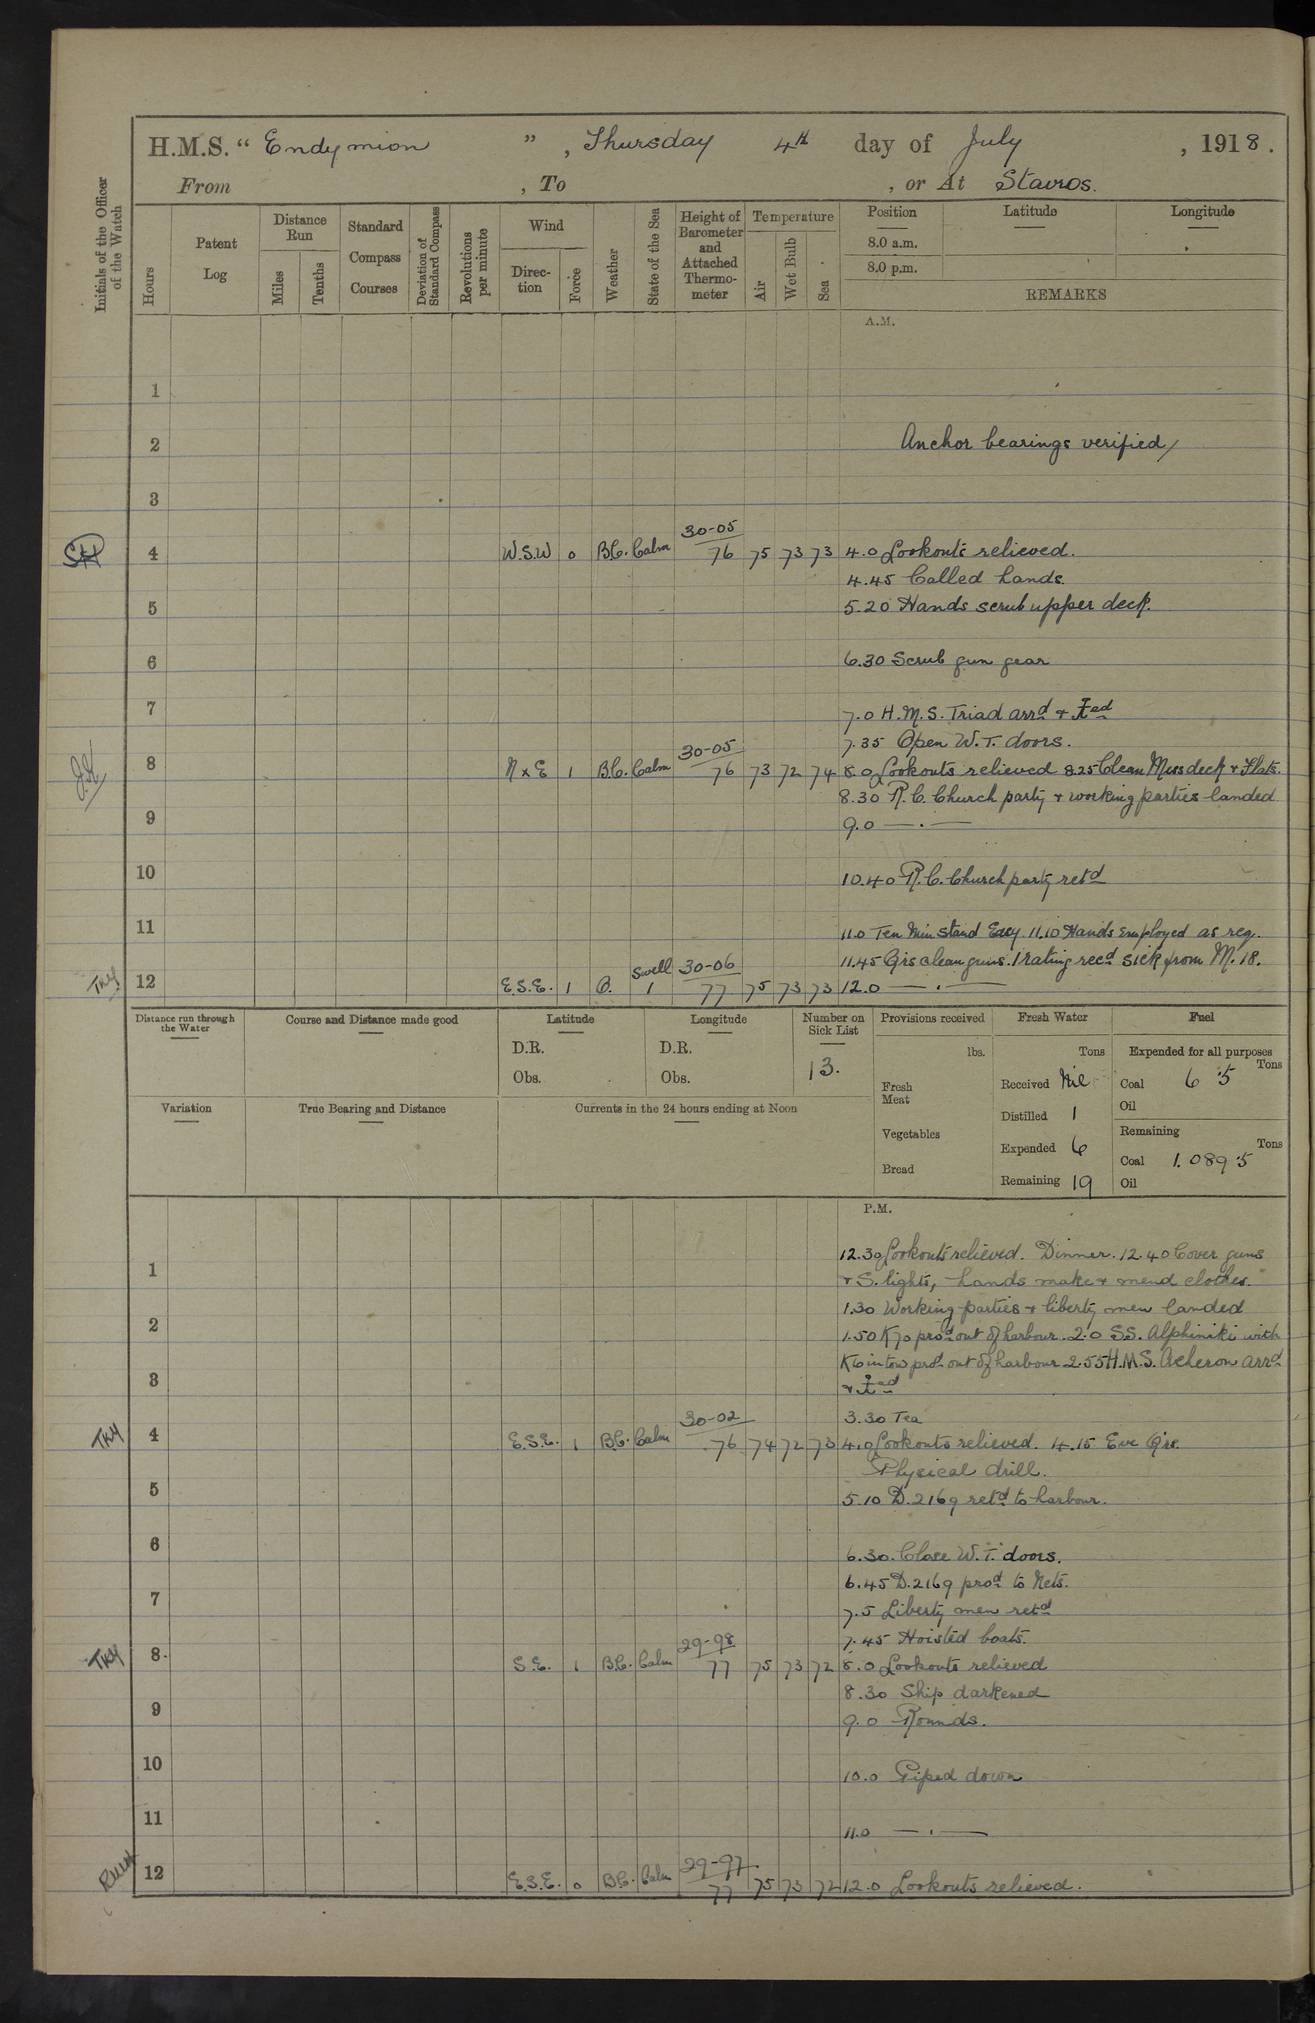 H.M.S. “ Endymion ” , Thursday 4th day of July , 1918.
From , To , or At Stavros.
Initials of the Officer of the Watch
Hours
Patent Log
Distance Run
Miles
Tenths
Standard Compass Courses
Deviation of Standard Compass
Revolutions per minute
Wind
Direc-tion
Force
Weather
State of the Sea
Height of Barometer and Attached Thermo-meter
Temperature
Air
Wet Bulb
Sea
Position
Latitude
Longitude
8.0 a.m.
8.0 p.m.
REMARKS
A.M.
1
2 Anchor bearings verified
3
30-05
4 W.S.W 0 B.C. Calm 76 75 73 73 4.0 Lookouts relieved.
4.45 Called hands.
5 5.20 Hands scrub upper deck.
6 6.30 Scrub gun gear
7 7.0 H.M.S. Triad arrd &
7.35 Open W.T. doors.
30-05
8 N x E 1 B.C. Calm 76 73 72 74 8.0 Lookouts relieved 8.25 Clean Mess deck & Flats.
8.30 R.C. Church party & working parties landed
9 9.0 — . —
10 10.40 R.C. Church party retd
11 11.0 Ten Min stand Easy 11.10 Hands employed as req.
11.45 Qrs clean guns. 1 rating recd sick from M.18.
Swell 30-06
TKY 12 E.S.E. 1 O. 1 77 75 73 73 12.0 — . —
Distance run through the Water
Course and Distance made good
Latitude
Longitude
Number on Sick List
Provisions received
Fresh Water
Fuel
D.R. D.R. 13. lbs. Tons Expended for all purposes Tons
Obs. Obs. Fresh Meat Received Nil Coal 6.5
Variation
True Bearing and Distance
Currents in the 24 hours ending at Noon
Distilled 1 Oil
Vegetables Expended 6 Remaining Tons
Bread Coal 1.089.5
Remaining 19 Oil
P.M.
12.30 Lookouts relieved. Dinner. 12.40 Cover guns
1 & S. lights, hands make & mend clothes.
1.30 Working parties & liberty men landed
2 1.50 K70 prod out of harbour. 2.0 SS. Alphiniki with
K6 in tow prod out of harbour 2.55 H.M.S. Acheron arrd
3 &
30-02 3.30 Tea
TKY 4 E.S.E. 1 B.C. Calm 76 74 72 73 4.0 Lookouts relieved. 4.15 Eve Qrs.
Physical drill.
5 5.10 D.2169 retd to harbour.
6 6.30. Close W.T. doors.
6.45 D.2169 prod to Nets.
7 7.5 Liberty men retd
29-98 7.45 Hoisted boats.
TKY 8 S.E. 1 B.C. Calm 77 75 73 72 8.0 Lookouts relieved
8.30 Ship darkened
9 9.0 Rounds.
10 10.0 Piped down
11 11.0 — . —
29-97
12 E.S.E. 0 B.C. Calm 77 75 73 72 12.0 Lookouts relieved.